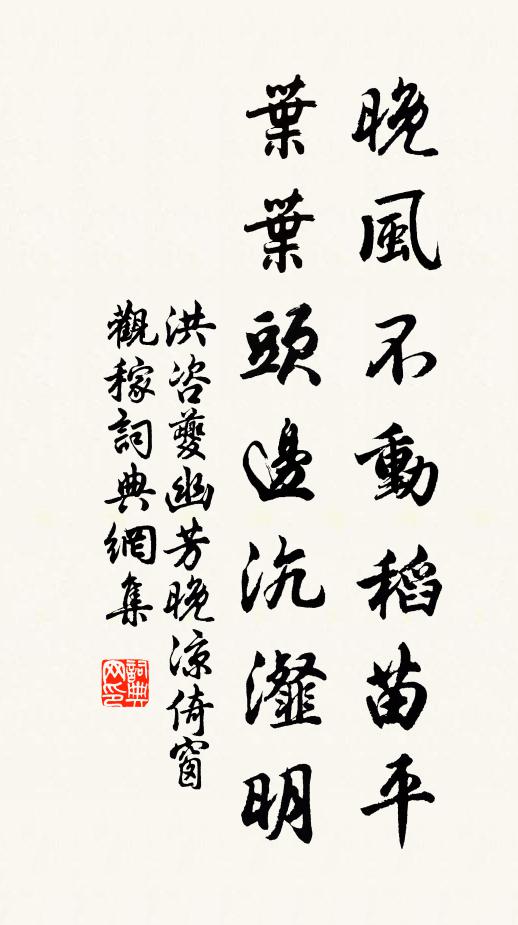 晚風不動稻苗平
葉葉頭邊沆瀣明
洪咨夔幽芳晚涼倚窗
觀稼詞典網集
詞典网印